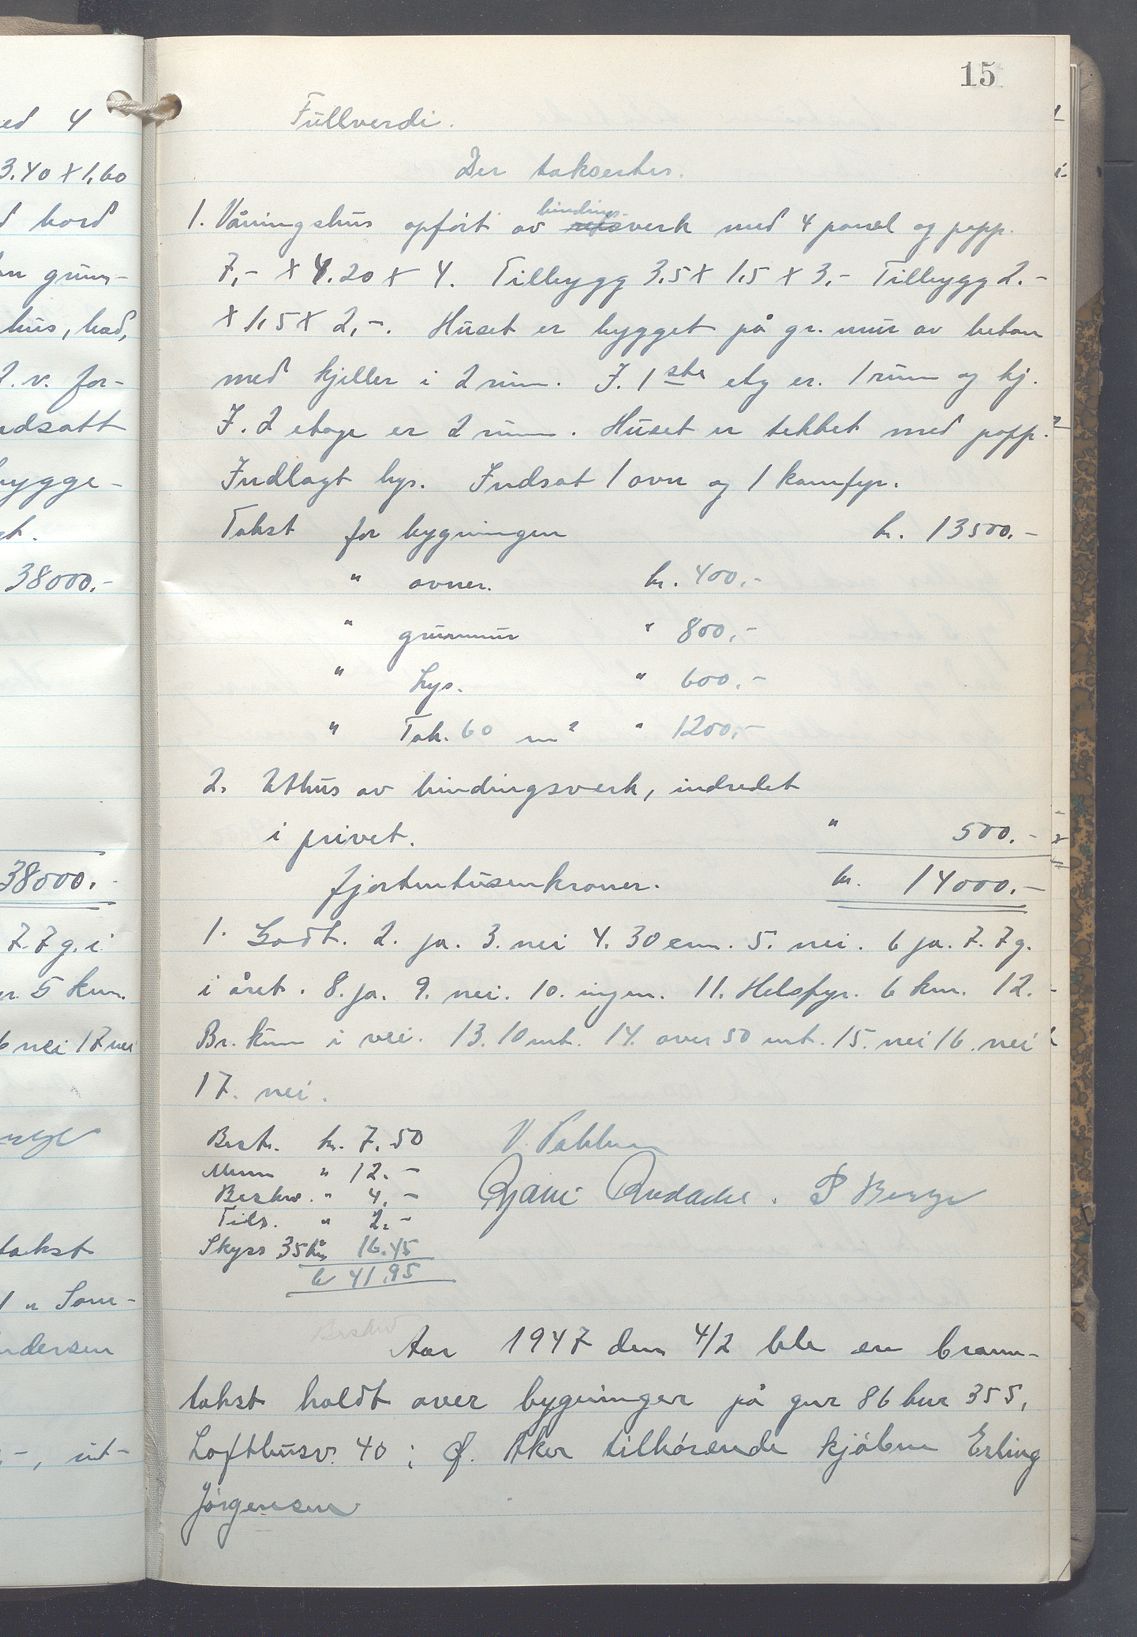 ed 4
3.40 X 1,60
d bord
grun-
hus, bad,
2. v. for-
ndsatt
bygge-
38000.-
38000.-
7. 7 g. i
5 km.
6 nei 17 nei
takst
1 " Som-
ndersen
-, int-
15
Fullverdi.
Der takserter.
1. Våningshus opført av bindingsverk med 4 panel og papp.
7,- X 4.20 X 4. Tilbygg 3,5 X 1,5 X 3,- Tilbygg 2.-
X 1,5 X 2,-. Huset er bygget på gr. mur av beton
med kjeller i 2 rum. I. 1ste etg er. 1 rum og kj.
I. 2 etage er 2 rum. Huset er tekket med papp.
Indlagt lys. Indsat 1 ovn og 1 komfyr.
Takst for bygningen kr. 13500.-
" ovner. kr. 400.-
" grunmur " 800,-
" Lys. " 600.-
" Tak. 60 m² " 1200,-
2. Uthus av bindingsverk, indredet
i privet. " 500.-
fjortentusenkroner. kr. 14000.-
1. Godt. 2. ja. 3. nei 4. 30 cm. 5. nei. 6 ja. 7. 7 g.
i året. 8. ja. 9. nei. 10. ingen. 11. Helsfyr. 6 km. 12.
Br. kum i vei. 13. 10 mt. 14. over 50 mt. 15. nei 16. nei
17. nei.
Bestr. kr. 7.50
" 12.-
Beskr. " 4,-
P Berge
Tils. " 2.-
Skyss 35 km 16.45
kr 41.95
Aar 1947 den 4/2 ble en brann-
takst holdt over bygninger på gnr 86 bnr 355,
Lofthusv. 40; Ø. Aker tilhørende kjøbm Erling
Jørgensen